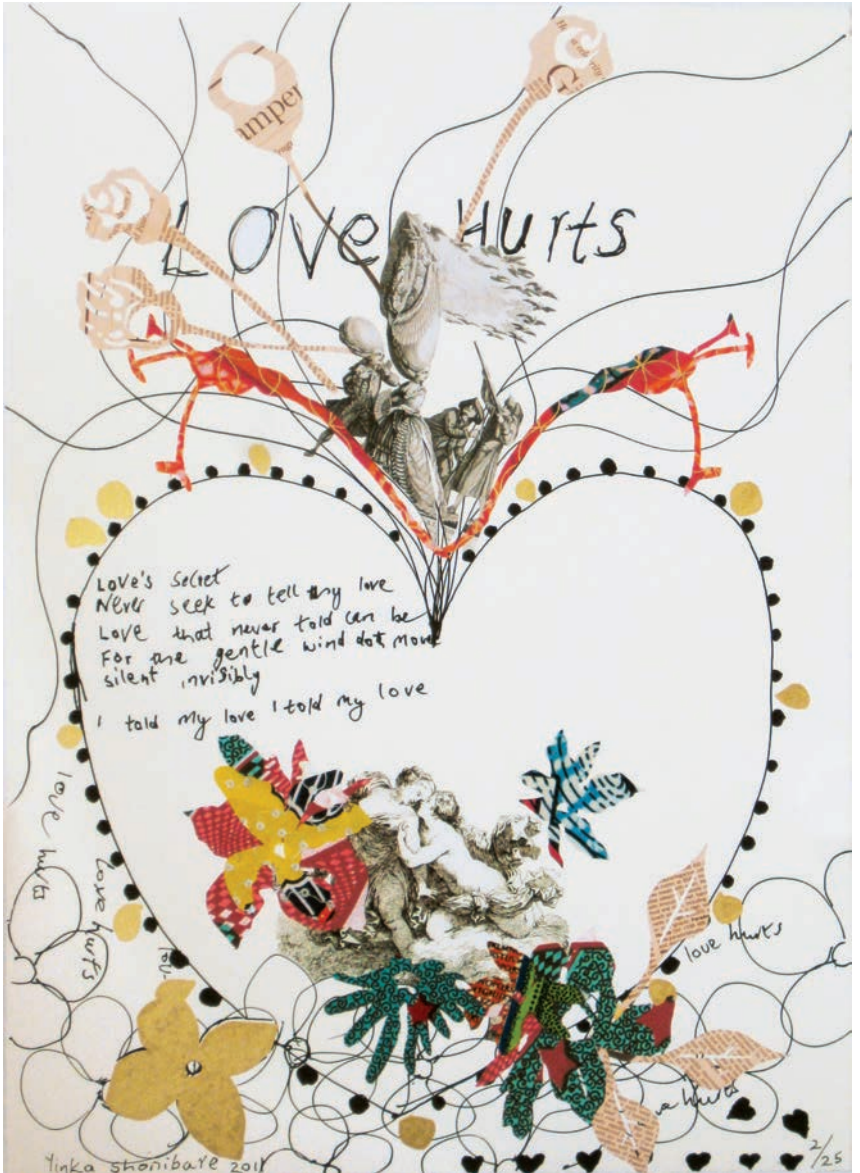 amper
G
Love Hurts
Love's secret
Never seek to tell thy love
Love that never told can be
For the gentle wind dot move
silent invisibly
I told my love I told my love
love hurts
love hurts
love
love hurts
e hurts
Yinka Shonibare 2011
2/25